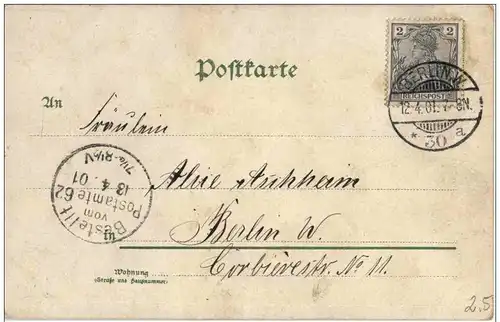 2 2
REICHSPOST
BERLIN.W.
12.4.01. 7-8N.
* 30 a
Postkarte
An
Fräulein
Bestellt
vom
Postamte 62
13 4 01
7¼-8½V
Alice
in Berlin W.
Wohnung
(Straße und Hausnummer)
Corbièrestr. No 11.
2.5